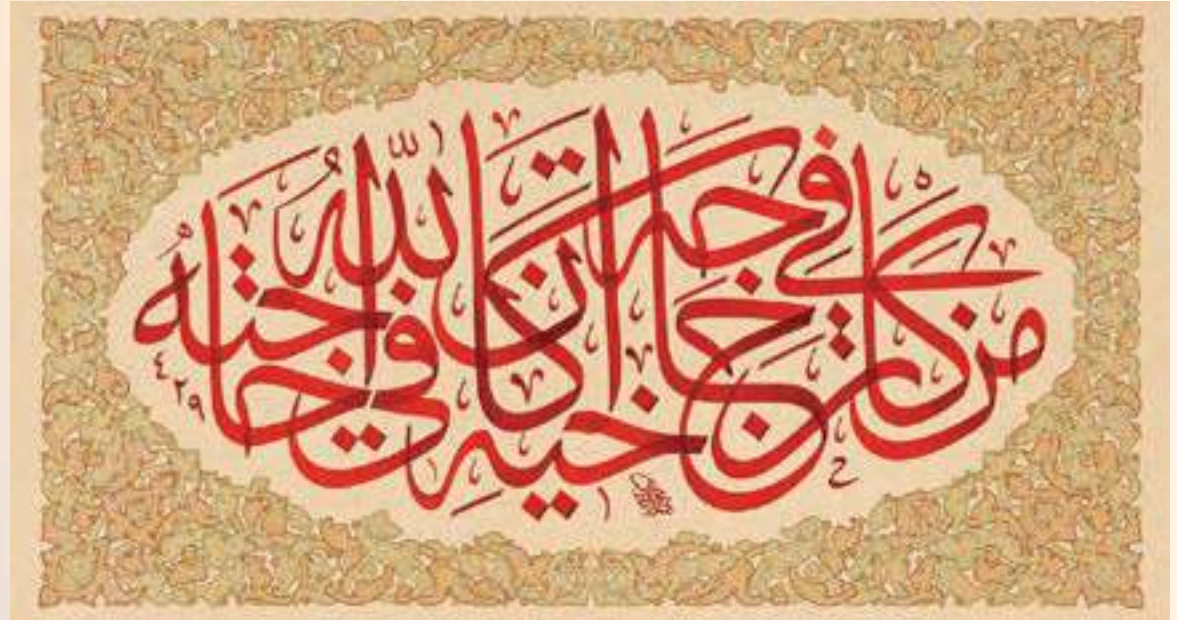 من كان في حاجة أخيه كان اللّٰه في حاجته
٤٢٩